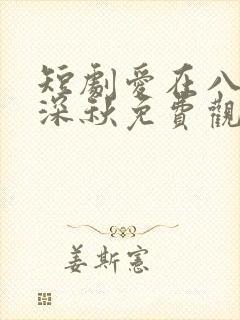 短劇愛在八
深秋免費觀
姜斯憲